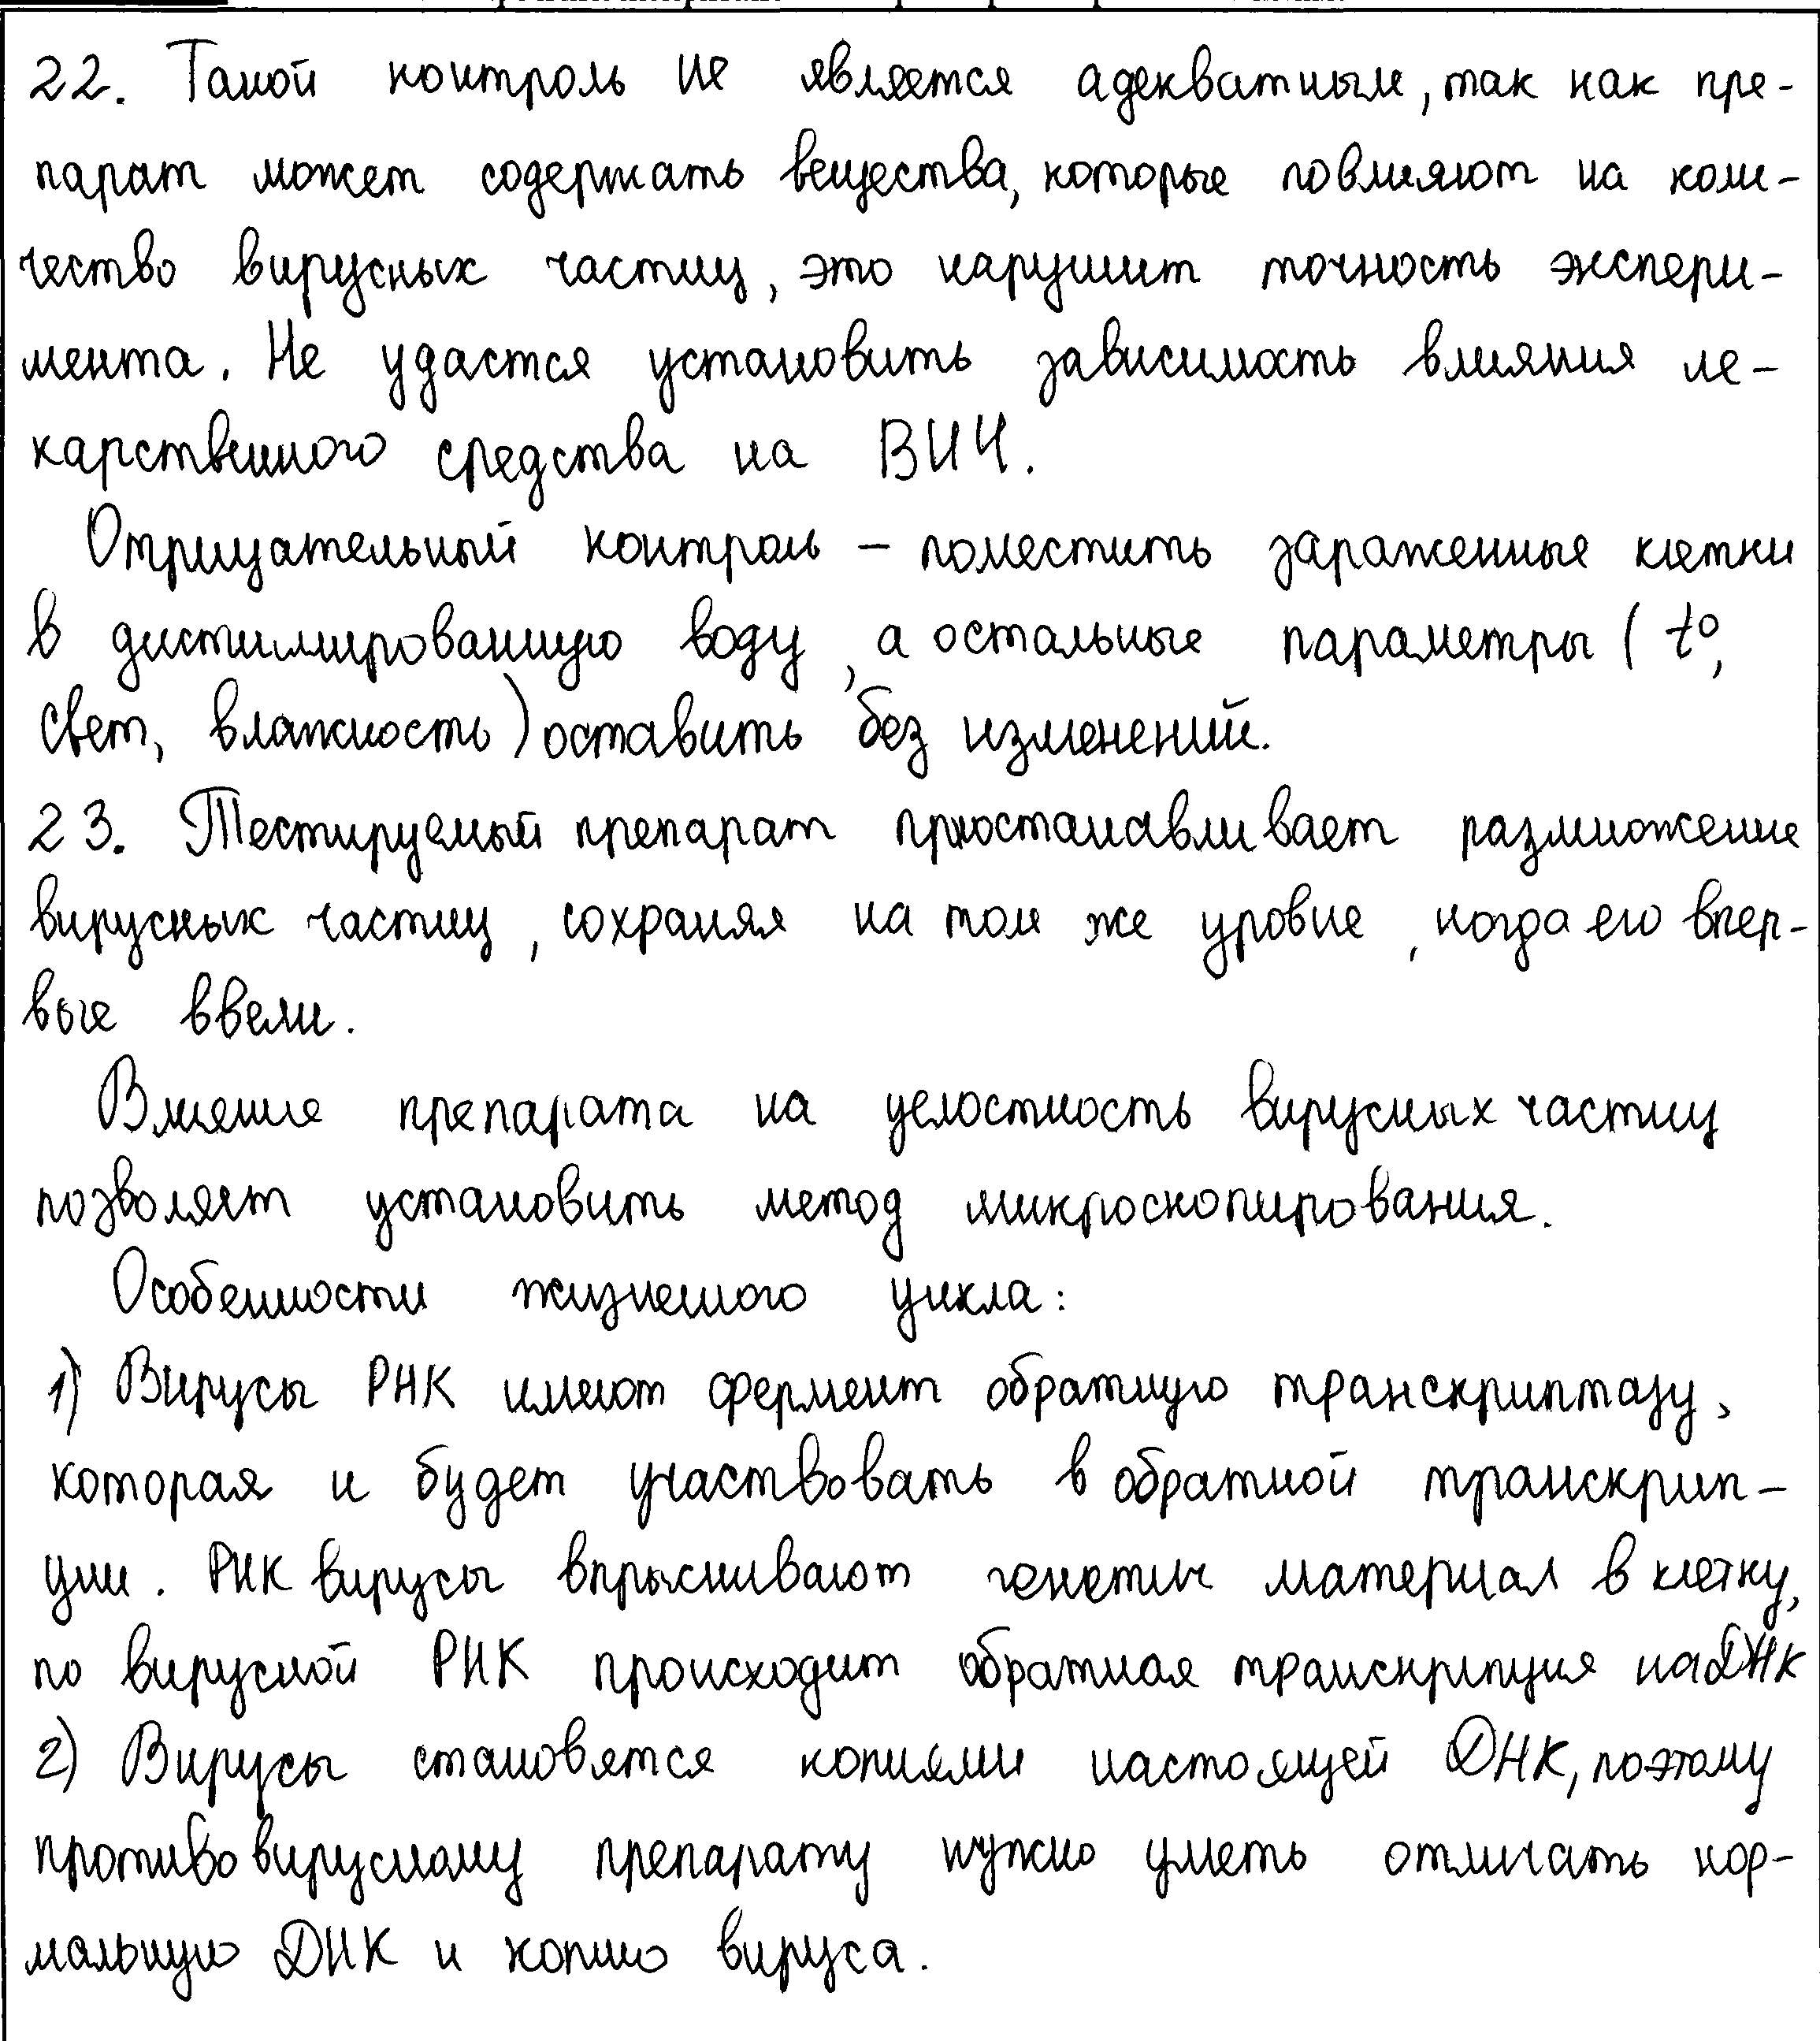 22. Такой контроль не является адекватным, так как пре-
парат может содержать вещества, которые повлияют на коли-
чество вирусных частиц, это нарушит точность экспери-
мента. Не удастся установить зависимость влияния ле-
карственного средства на ВИЧ.
Отрицательный контроль – поместить зараженные клетки
в дистиллированную воду, а остальные параметры (t°,
свет, влажность) оставить без изменений.
23. Тестируемый препарат приостанавливает размножение
вирусных частиц, сохраняя на том же уровне, когда его впер-
вые ввели.
Влияние препарата на целостность вирусных частиц
позволяет установить метод микроскопирования.
Особенности жизненного цикла:
1) Вирусы РНК имеют фермент обратную транскриптазу,
которая и будет участвовать в обратной транскрип-
ции. РНК вирусы впрыскивают генетич материал в клетку,
по вирусной РНК происходит обратная транскрипция на ДНК
2) Вирусы становятся копиями настоящей ДНК, поэтому
противовирусному препарату нужно уметь отличать нор-
мальную ДНК и копию вируса.